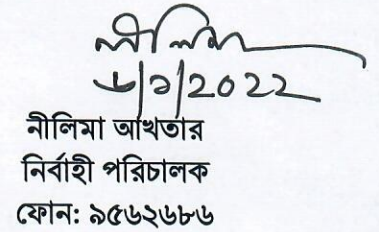 নীলিমা
৬|১|2022
নীলিমা আখতার
নির্বাহী পরিচালক
ফোন: ৯৫৬২৬৮৬